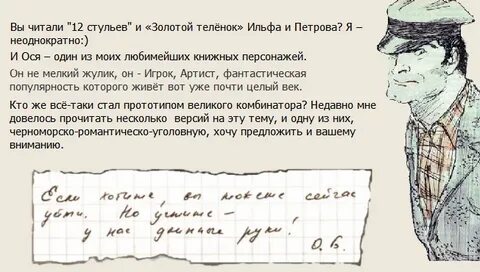 Вы читали "12 стульев" и «Золотой телёнок» Ильфа и Петрова? Я –
неоднократно:)
И Ося – один из моих любимейших книжных персонажей.
Он не мелкий жулик, он - Игрок, Артист, фантастическая
популярность которого живёт вот уже почти целый век.
Кто же всё-таки стал прототипом великого комбинатора? Недавно мне
довелось прочитать несколько версий на эту тему, и одну из них,
черноморско-романтическо-уголовную, хочу предложить и вашему
вниманию.
Если хотите, вы можете сейчас
уйти. Но учтите –
у нас длинные руки!
О.Б.